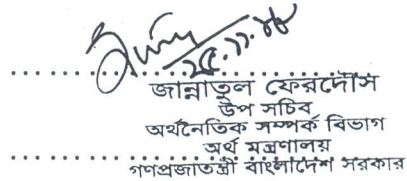 জান্নাতুল ফেরদৌস
উপ সচিব
অর্থনৈতিক সম্পর্ক বিভাগ
অর্থ মন্ত্রণালয়
গণপ্রজাতন্ত্রী বাংলাদেশ সরকার